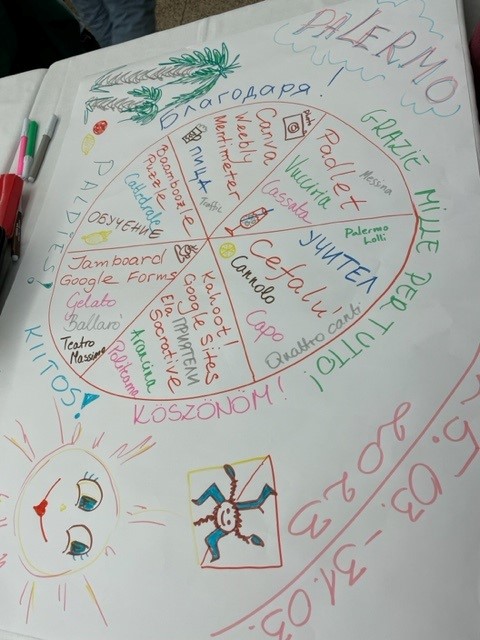 PALERMO
Благодаря!
GRAZIE MILLE PER TUTTO!
PALDIES!
KIITOS!
KÖSZÖNÖM!
Canva
Weebly
Mentimeter
ПИЦА
Traffic
Padlet
Messina
Vucciria
Cassata
Palermo
Lolli
УЧИТЕЛ
Cefalu'
Cannolo
Capo
Quattro canti
Baamboozle
Puzzle
Cattedrale
ОБУЧЕНИЕ
Jamboard
Google Forms
Gelato
Ballarò
Teatro
Massimo
Kahoot!
Google Sites
ПРИЯТЕЛИ
Socrative
Arancina
Politeama
.03. - 31.03.
2023